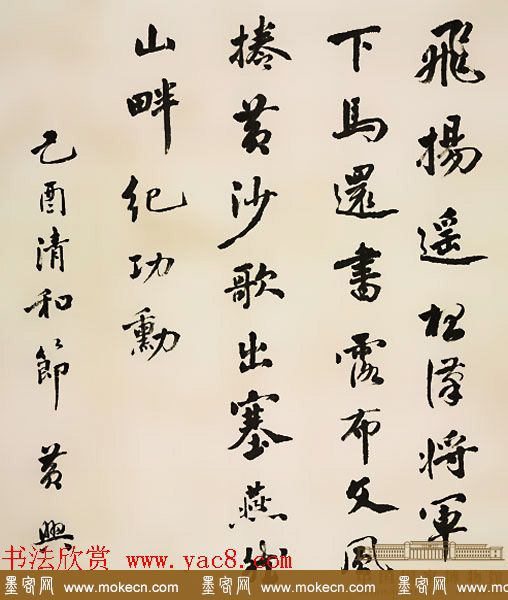 飛揚遥想漢將軍
下馬還書露布文風
捲黃沙歌出塞燕然
山畔紀功勳
己酉清和節 黃興
书法欣赏 www.yac8.com
墨客网 www.mokecn.com 墨客网 www.mokecn.com 墨客网 www.mokecn.com